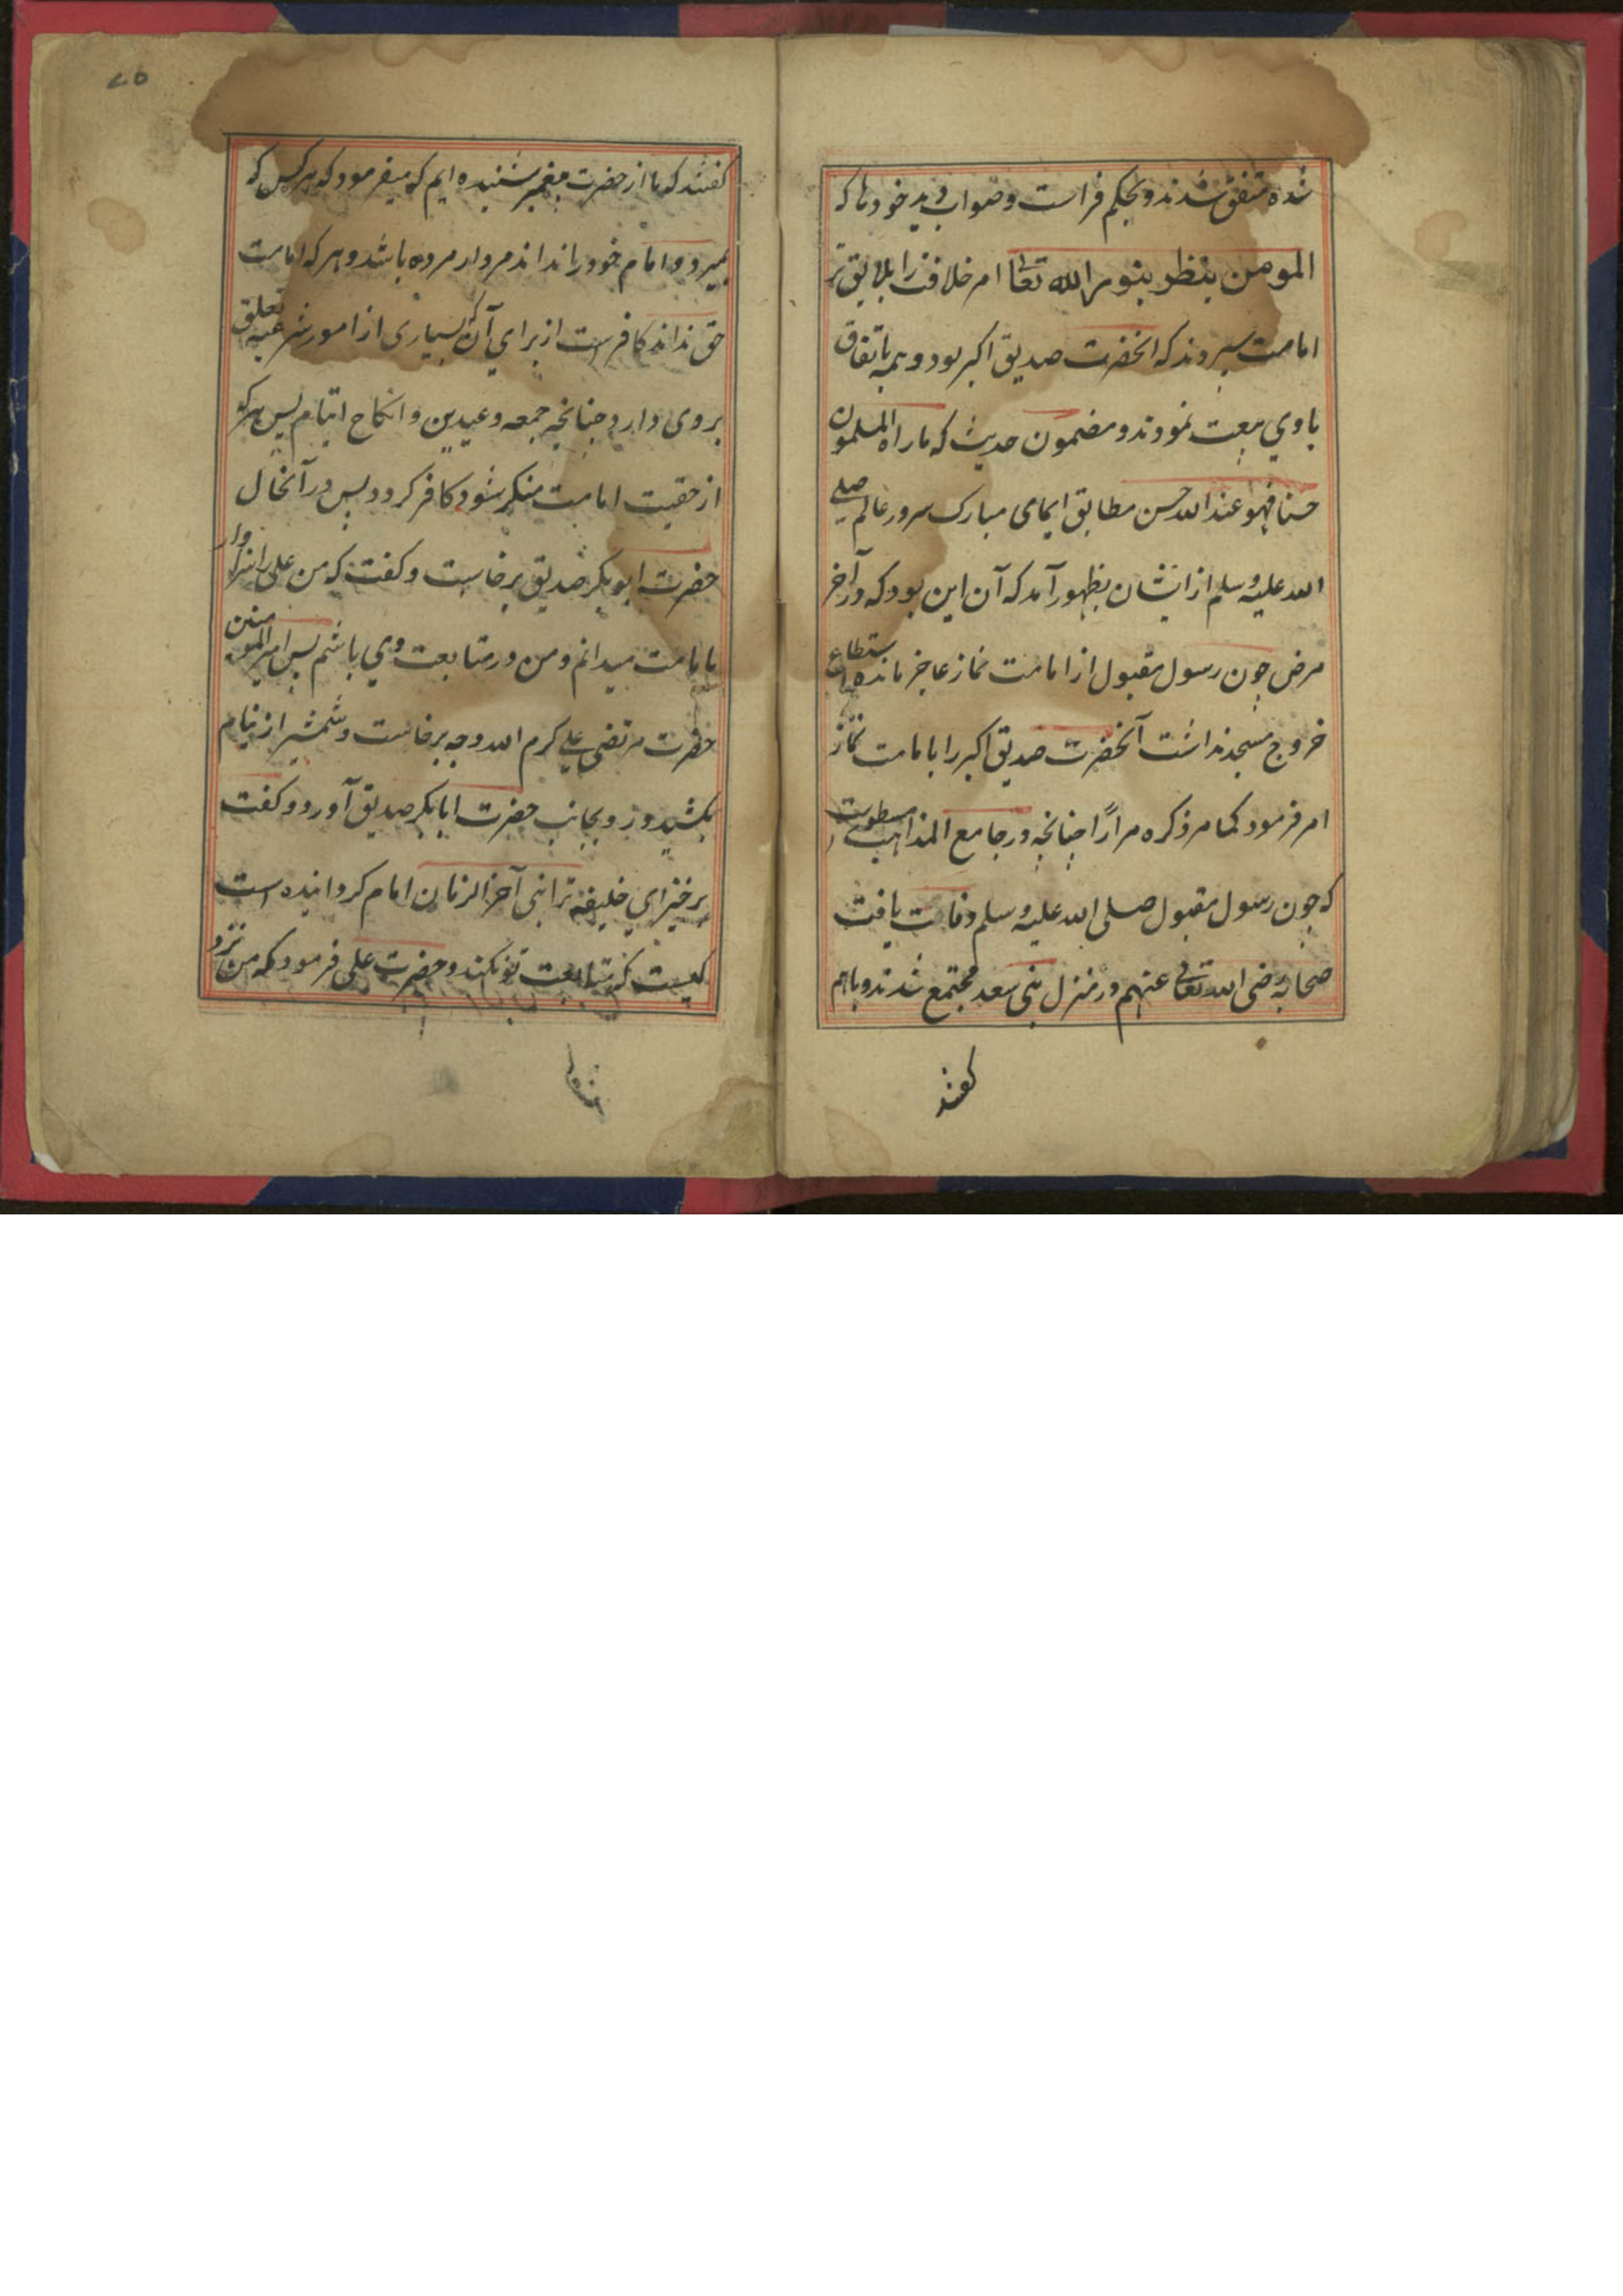 شده متفق شدند و بحکم فراست و صواب دید خودها که
المومن ینظر بنور الله تعا امر خلافت را بلایق تر
امامت سپردند که آنحضرت صدیق اکبر بود و همه باتفاق
با وي بیعت نمودند و مضمون حدیث که ما راه المسلمون
حسنا فهو عند الله حسن مطابق ایمای مبارک سرور عالم صلی
الله علیه وسلم از ایشان بظهور آمد که آن این بود که در آخر
مرض چون رسول مقبول از امامت نماز عاجز مانده استطاع
خروج مسجد نداشت آنحضرت صدیق اکبر را بامامت نماز
امر فرمود کما مر ذکره مرارًا چنانچه در جامع المذاهب مسطورست
که چون رسول مقبول صلی الله علیه وسلم وفات یافت
صحابه رضی الله تعالی عنهم در منزل بنی سعد مجتمع شدند و باهم
گفتند
گفتند که ما از حضرت پیغمبر شنیده ایم که میفرمود که هر کس که
بمیرد و امام خود را نداند مردار مرده باشد و هر که امامت
حق نداند کافر است از براي آن که بسیاری از امور شرعیه تعلق
بروی دارد چنانچه جمعه و عیدین و انکاح ایتام پس هر که
از حقیت امامت منکر شود کافر گردد پس در آنحال
حضرت ابوبکر صدیق برخاست و گفت که من علی را سزاوار
بامامت میدانم و من در متابعت وي باشم پس امیر المومنین
حضرت مرتضی علی کرم الله وجهه برخاست و شمشیر از نیام
بکشید و رو بجانب حضرت ابابکر صدیق آورد و گفت
برخیز اي خلیفه ترا نبی آخر الزمان امام گردانیده است
کیست که متابعت تو نکند و حضرت علی فرمود که من نزد